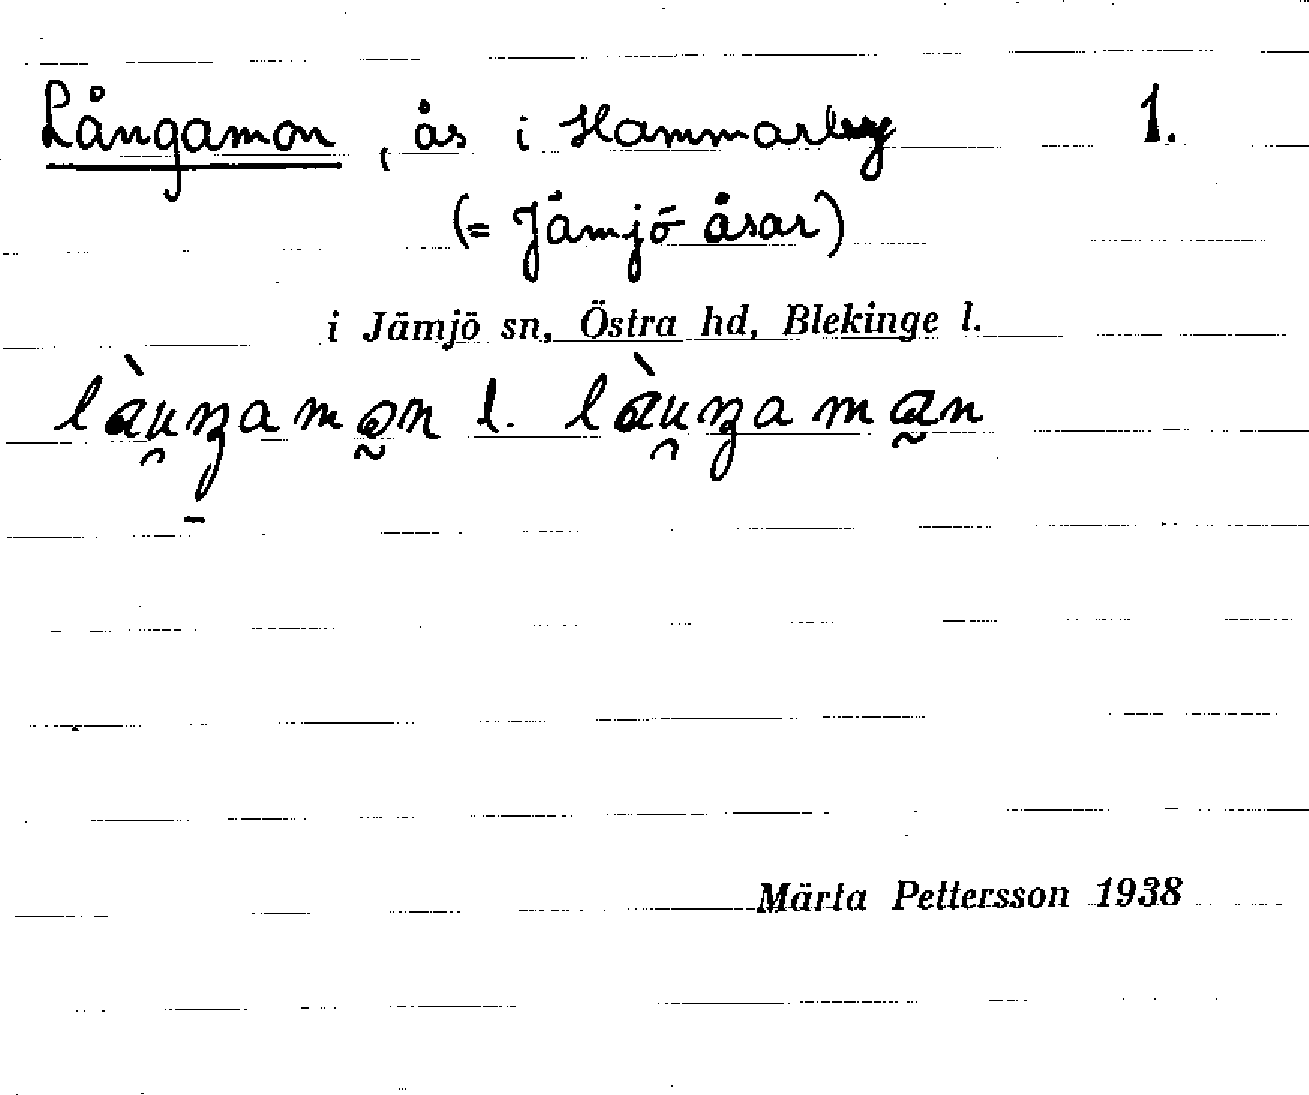 Långamon, ås i Hammarby 1.
(= Jämjö åsar)
i Jämjö sn, Östra hd, Blekinge l.
l.
Märta Pettersson 1938